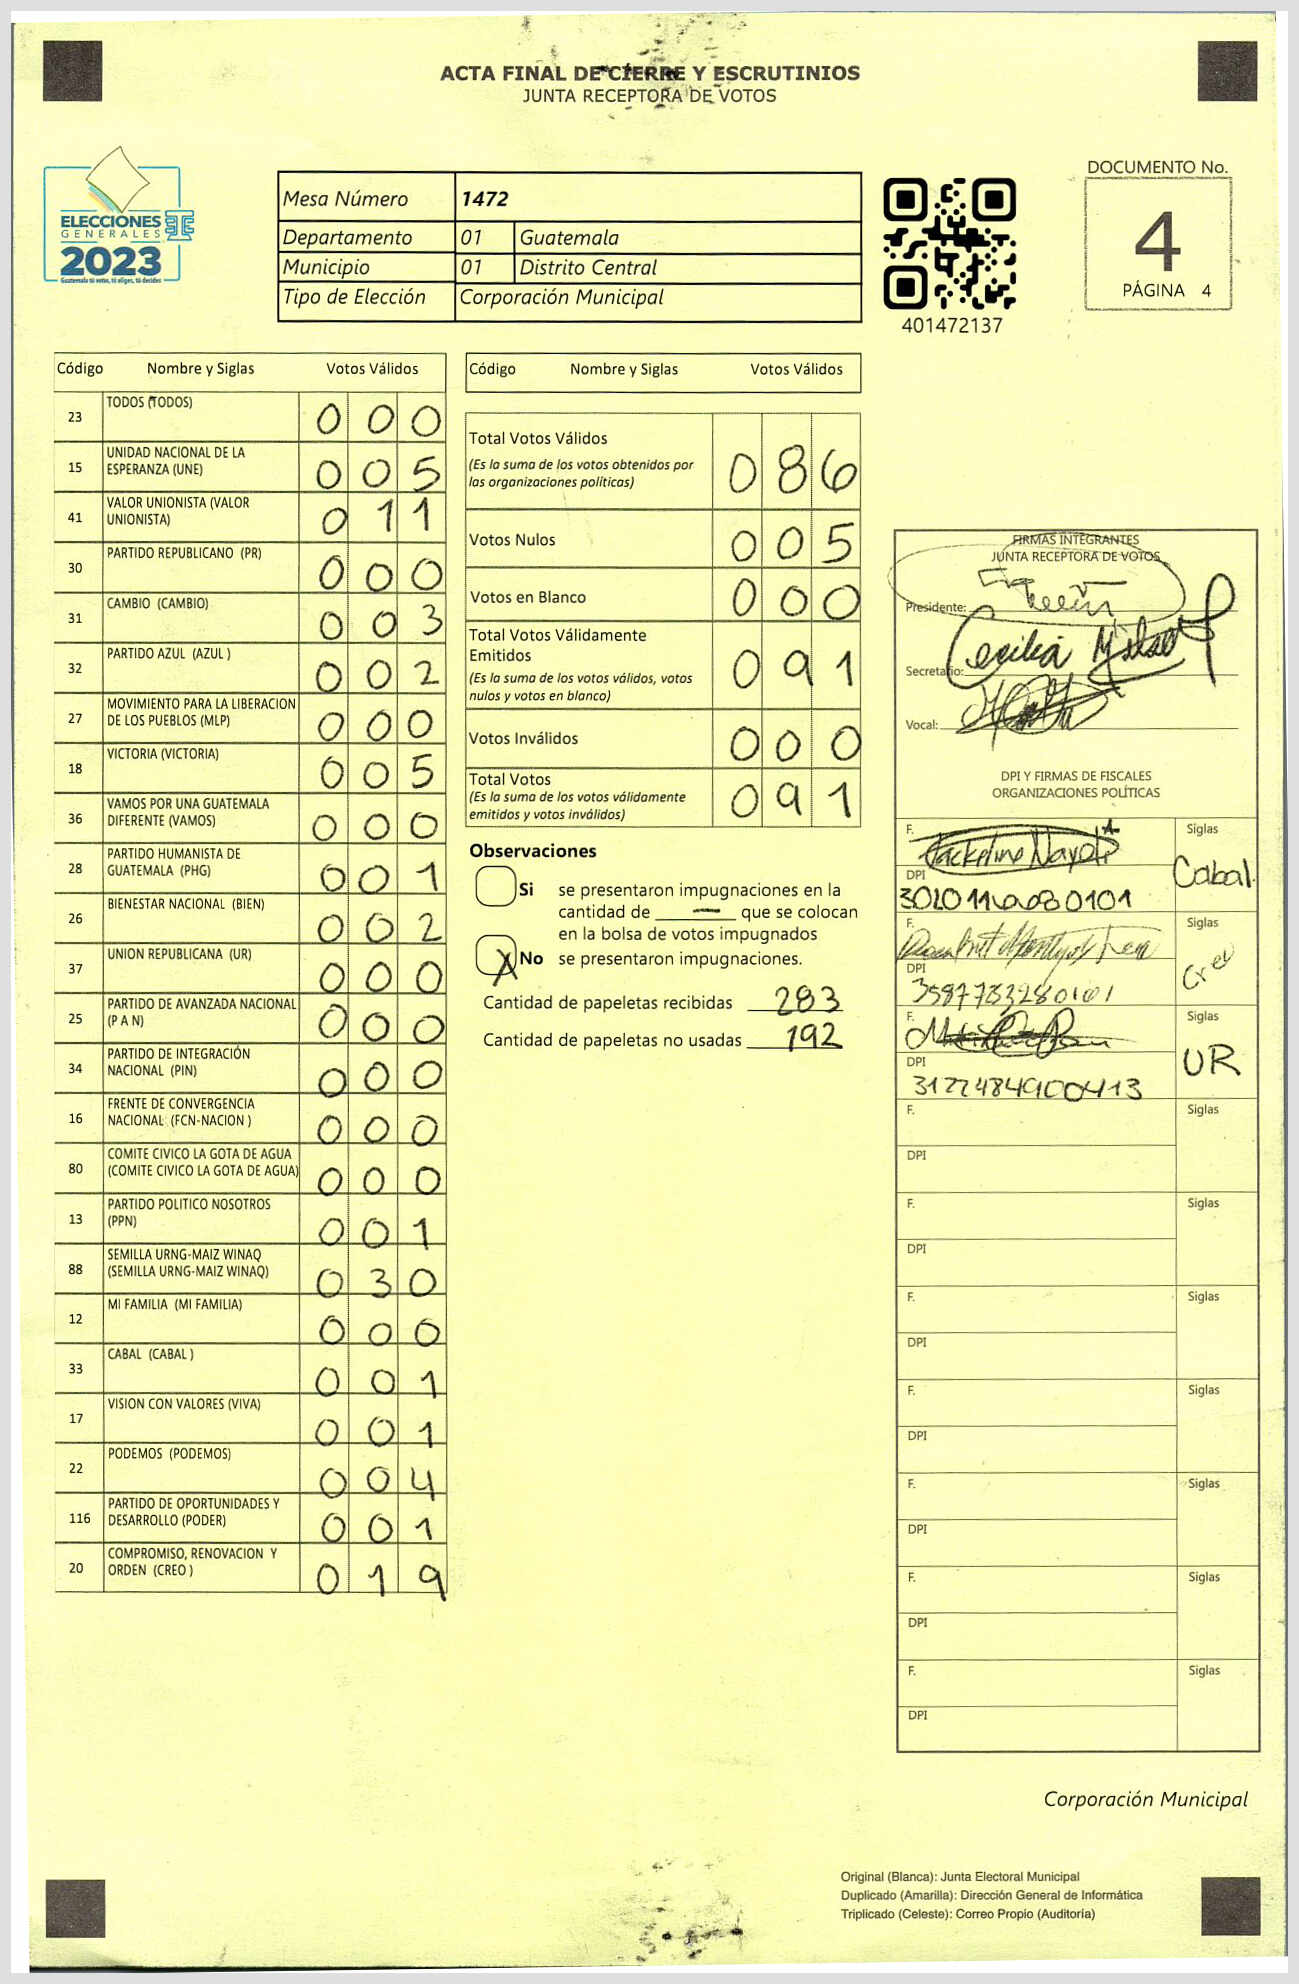 ACTA FINAL DE CIERRE Y ESCRUTINIOS
JUNTA RECEPTORA DE VOTOS
ELECCIONES
GENERALES
2023
Guatemala tú votas, tú eliges, tú decides
Mesa Número 1472
Departamento 01 Guatemala
Municipio 01 Distrito Central
Tipo de Elección Corporación Municipal
401472137
DOCUMENTO No.
4
PÁGINA 4
Código Nombre y Siglas Votos Válidos
23 TODOS (TODOS) 0 0 0
15 UNIDAD NACIONAL DE LA
ESPERANZA (UNE) 0 0 5
41 VALOR UNIONISTA (VALOR
UNIONISTA) 0 1 1
30 PARTIDO REPUBLICANO (PR) 0 0 0
31 CAMBIO (CAMBIO) 0 0 3
32 PARTIDO AZUL (AZUL ) 0 0 2
27 MOVIMIENTO PARA LA LIBERACION
DE LOS PUEBLOS (MLP) 0 0 0
18 VICTORIA (VICTORIA) 0 0 5
36 VAMOS POR UNA GUATEMALA
DIFERENTE (VAMOS) 0 0 0
28 PARTIDO HUMANISTA DE
GUATEMALA (PHG) 0 0 1
26 BIENESTAR NACIONAL (BIEN) 0 0 2
37 UNION REPUBLICANA (UR) 0 0 0
25 PARTIDO DE AVANZADA NACIONAL
(P A N) 0 0 0
34 PARTIDO DE INTEGRACIÓN
NACIONAL (PIN) 0 0 0
16 FRENTE DE CONVERGENCIA
NACIONAL (FCN-NACION ) 0 0 0
80 COMITE CIVICO LA GOTA DE AGUA
(COMITE CIVICO LA GOTA DE AGUA) 0 0 0
13 PARTIDO POLITICO NOSOTROS
(PPN) 0 0 1
88 SEMILLA URNG-MAIZ WINAQ
(SEMILLA URNG-MAIZ WINAQ) 0 3 0
12 MI FAMILIA (MI FAMILIA) 0 0 0
33 CABAL (CABAL ) 0 0 1
17 VISION CON VALORES (VIVA) 0 0 1
22 PODEMOS (PODEMOS) 0 0 4
116 PARTIDO DE OPORTUNIDADES Y
DESARROLLO (PODER) 0 0 1
20 COMPROMISO, RENOVACION Y
ORDEN (CREO ) 0 1 9
Código Nombre y Siglas Votos Válidos
Total Votos Válidos
(Es la suma de los votos obtenidos por
las organizaciones políticas) 0 8 6
Votos Nulos 0 0 5
Votos en Blanco 0 0 0
Total Votos Válidamente
Emitidos 0 9 1
(Es la suma de los votos válidos, votos
nulos y votos en blanco)
Votos Inválidos 0 0 0
Total Votos
(Es la suma de los votos válidamente
emitidos y votos inválidos) 0 9 1
Observaciones
Si se presentaron impugnaciones en la
cantidad de — que se colocan
en la bolsa de votos impugnados
X No se presentaron impugnaciones.
Cantidad de papeletas recibidas 283
Cantidad de papeletas no usadas 192
FIRMAS INTEGRANTES
JUNTA RECEPTORA DE VOTOS
Presidente:
Secretario: Cecilia
Vocal:
DPI Y FIRMAS DE FISCALES
ORGANIZACIONES POLÍTICAS
F. Siglas
DPI Cabal.
F. Siglas
DPI Creo
F. Siglas
DPI UR
3122484900413
F. Siglas
DPI
F. Siglas
DPI
F. Siglas
DPI
F. Siglas
DPI
F. Siglas
DPI
F. Siglas
DPI
F. Siglas
DPI
Corporación Municipal
Original (Blanca): Junta Electoral Municipal
Duplicado (Amarilla): Dirección General de Informática
Triplicado (Celeste): Correo Propio (Auditoría)